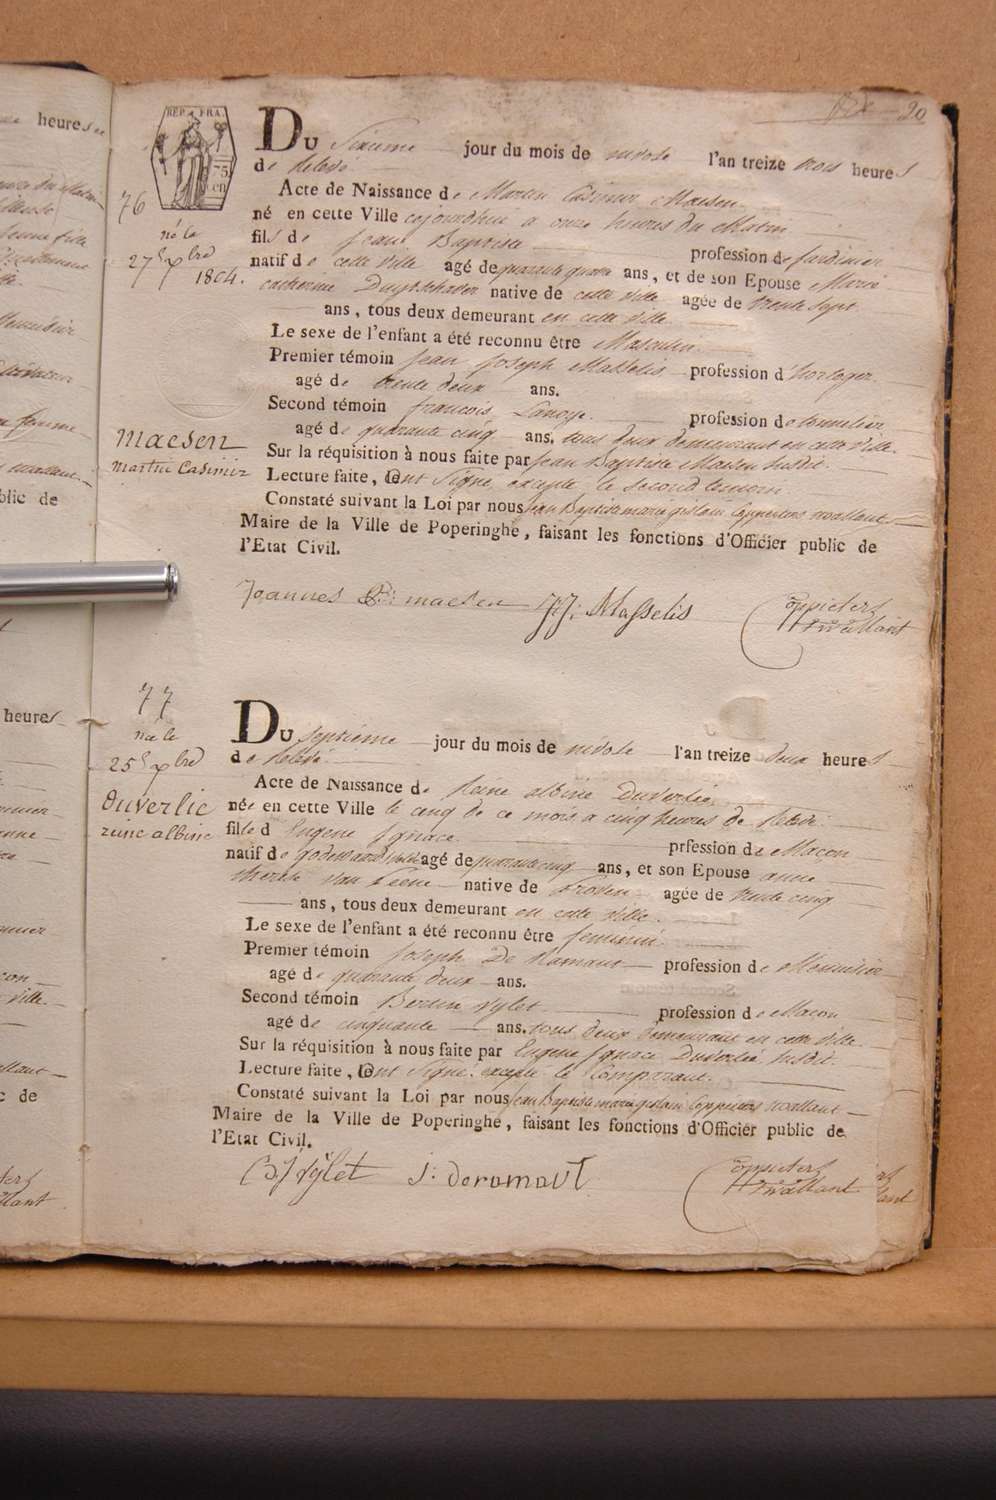 20
REP. FRA.
75
cen
76
né le
27 Xbre
1804.
maesen
martin Casimir
Du Sixieme jour du mois de nivose l'an treize trois heures
de Relevé
Acte de Naissance de Martin Casimir Maisen
né en cette Ville cejourdhui a onze heures du Matin
fils de Jean Baptiste profession de Jardinier
natif de cette ville agé de quarante quatre ans, et de son Epouse Marie
catherine native de cette ville agée de trente sept
ans, tous deux demeurant en cette ville
Le sexe de l'enfant a été reconnu être Masculin
Premier témoin Jean Joseph Masselis profession d'horloger
agé de trente deux ans.
Second témoin francois Lanoye profession de tonnelier
agé de quarante cinq ans. tous deux demeurant en cette ville.
Sur la réquisition à nous faite par Jean Baptiste Maisen susdit.
Lecture faite, ont signé excepté le second temoin
Constaté suivant la Loi par nous Jean Baptiste marie gislain Coppieters wallant
Maire de la Ville de Poperinghe, faisant les fonctions d'Officier public de
l'Etat Civil.
Joannes B: maesen J J: Masselis Coppieters
wallant
77
née le
25 Xbre
Duverlie
reine albine
Du septieme jour du mois de nivose l'an treize deux heures
de Relevé
Acte de Naissance de Reine albine Duverlié
née en cette Ville le cinq de ce mois a cinq heures de Relevé
fille d Eugene Ignace prfession de Maçon
natif de agé de quarante cinq ans, et son Epouse anne
therese van native de Proven agée de trente cinq
ans, tous deux demeurant en cette ville.
Le sexe de l'enfant a été reconnu être feminin
Premier témoin Joseph De Ramaut profession de Menuisier
agé de quarante deux ans.
Second témoin Bertin Vylet profession de Macon
agé de cinquante ans. tous deux demeurant en cette ville.
Sur la réquisition à nous faite par Eugene Ignace Duverlié susdit.
Lecture faite, ont signé excepté le Comparant.
Constaté suivant la Loi par nous Jean Baptiste marie gislain Coppieters wallant
Maire de la Ville de Poperinghe, faisant les fonctions d'Officier public de
l'Etat Civil.
B J Vylet J: deramaut Coppieters
wallant